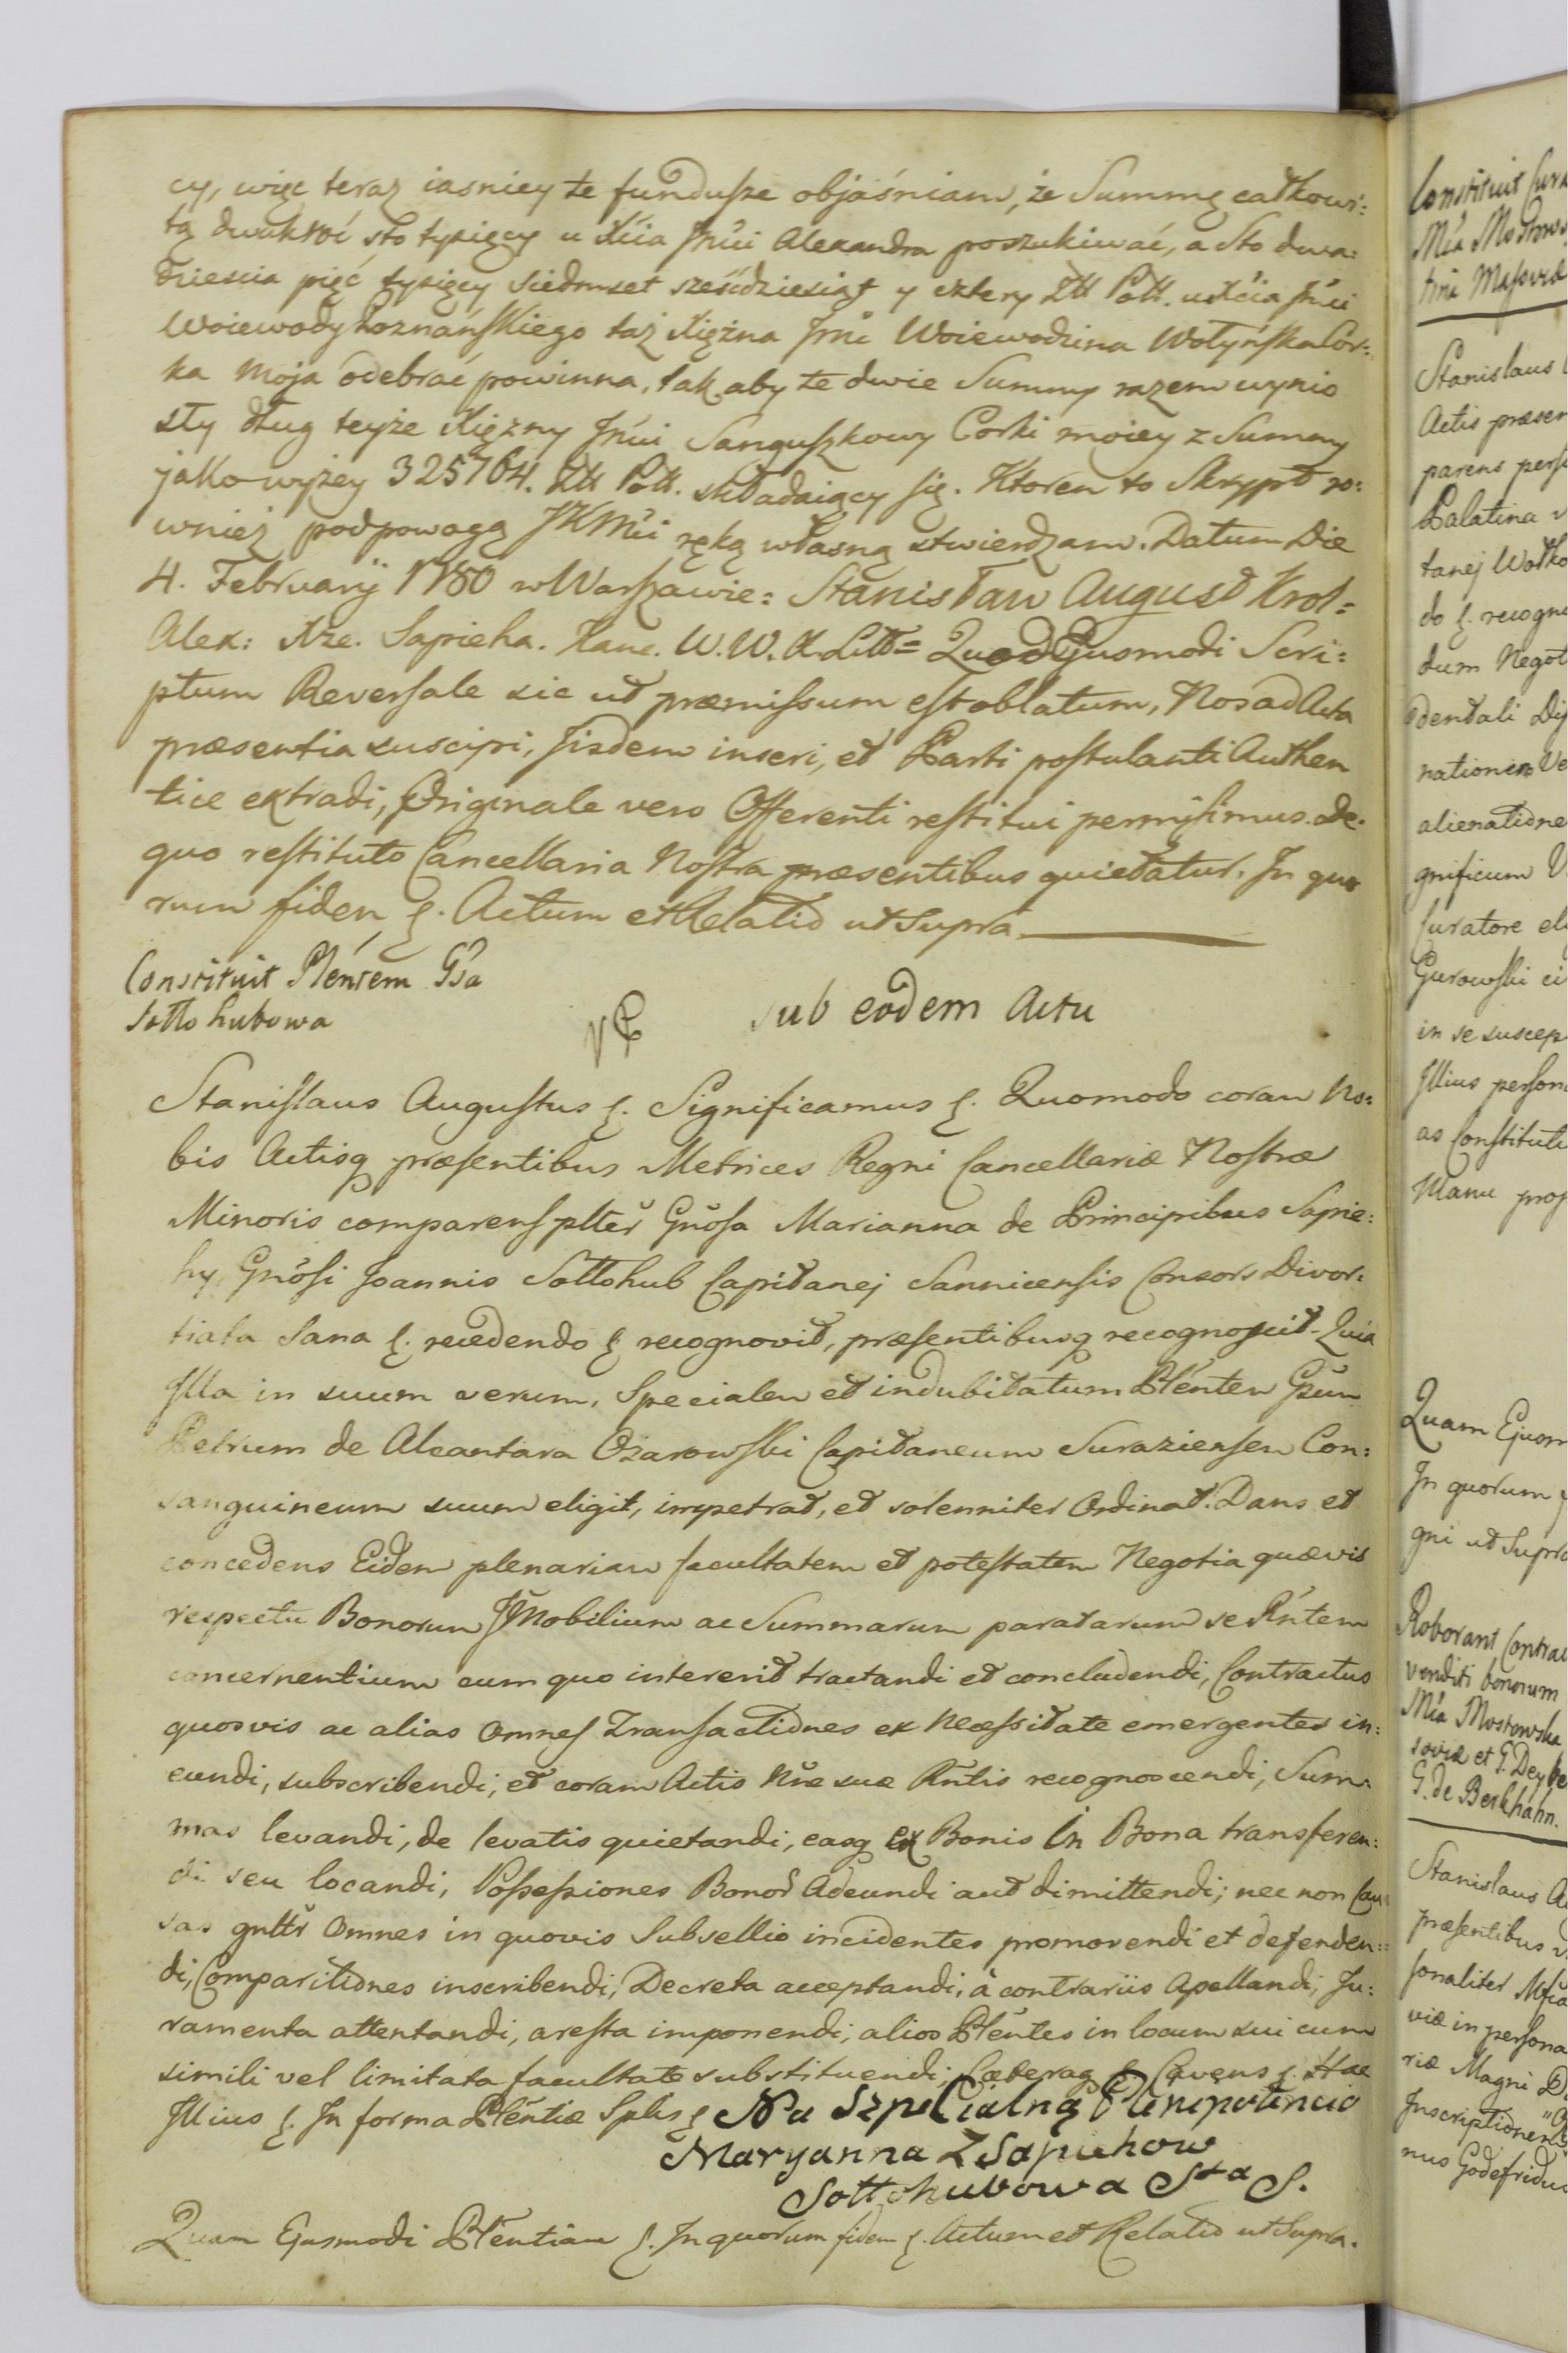 cy, więc teraz iasniey te fundusze objaśniam, że Summę całkowi:
tą dwukroć sto tysięcy u Xcia Jmći Alexandra poszukiwać, a Sto dwa:
dziescia pięć tysięcy siedmset sześćdziesiąt y cztery Złł Poll. u Xćia Jmći
Woiewody Poznańskiego taż Xiężna Jmć Woiewodzina Wołyńska Cor:
ka Moja odebrać powinna, tak aby te dwie Summy razem wynio
sły dług teyże Xiężny Jmći Sanguszkowy Corki moiey z Summy
jako wyżey 325764. Złł Poll. składaiący się. Ktoren to Skrypt ro:
wnież pod powagą JKMći ręką własną stwierdzam. Datum Die
4. Februarij 1780 w Warszawie: Stanisław August Krol=
Alex: Xże. Sapieha. Kanc. W. W. X. Litt= Quod Ejusmodi Scri:
ptum Reversale sic ut præmissum est oblatum, Nos ad Acta
præsentia suscipi, Jisdem inseri, et Parti postulanti Authen
tice extradi, Originale vero Offerenti restitui permisimus. De.
quo restituto Cancellaria Nostra præsentibus quietatur. In quo
rum fidem ę. Actum et Relatio ut Supra.
Constituit Plentem Gsa
Sołło hubowa
sub eodem Actu
Stanislaus Augustus ę. Significamus ę. Quomodo coram No:
bis Actisq præsentibus Metrices Regni Cancellariæ Nostræ
Minoris comparens plter Gnosa Marianna de Principibus Sapie:
hy, Gnosi Joannis Sołłohub Capitanej Sannicensis Consors Divor:
tiata Sana ę. recedendo ę recognovit, præsentibusq recognoscit. Quia
Illa in suum verum, Specialem et indubitatum Plentem Gsum
Petrum de Alcantara Ożarowski Capitaneum Suraziensem Con:
sanguineum suum eligit, impetrat, et solenniter Ordinat. Dans et
concedens Eidem plenariam facultatem et potestatem Negotia quævis
respectu Bonorum Mobilium ac Summarum paratarum se Rntem
concernentium cum quo intererit tractandi et concludendi, Contractus
quosvis ac alias Omnes Transactiones ex Necessitate emergentes in:
eundi, subscribendi, et coram Actis Nre suæ Rntis recognoscendi, Sum:
mas levandi, de levatis quietandi, easq ex Bonis In Bona transferen:
di seu locandi, Possessiones Bonor Adeundi aut dimittendi; nec non Cau
sas gnltr Omnes in quovis Subsellio incidentes promovendi et defenden:
di, Comparitiones inscribendi, Decreta acceptandi, à contrariis Apellandi, Ju:
ramenta attentandi, aresta imponendi, alios Plentes in locum sui cum
simili vel limitata facultate substituendi, Cæteraq ę Cavens ę. Hac
Illius ę. In forma Plentiæ Splis ę Na Szpecialną Plenipotencio
Maryanna Z Sapiehow
Sołłohubowa Sta S.
Quam Ejusmodi Plentiam ę. In quorum fidem ę. Actum et Relatio ut Supra.
Constituit
Mia Mostows
Stanislaus
Actis præsen
parens pers
Palatina
do ę. recogn
dum Negot
nationem Ve
alienatione
gnificum
Curatore el
Gurowski ei
in se suscep
Illius person
as Constituti
Manu prop
Quam Ejusm
In quorum
gni ut Supra
Roborant Contrac
venditi bonorum
Mia Mostowska
soviæ et G. Dey
G. de Berkhahn.
Stanislaus A
præsentibus
sonaliter
viæ in persona
riæ Magni D
Inscriptionem
nus Godefridus